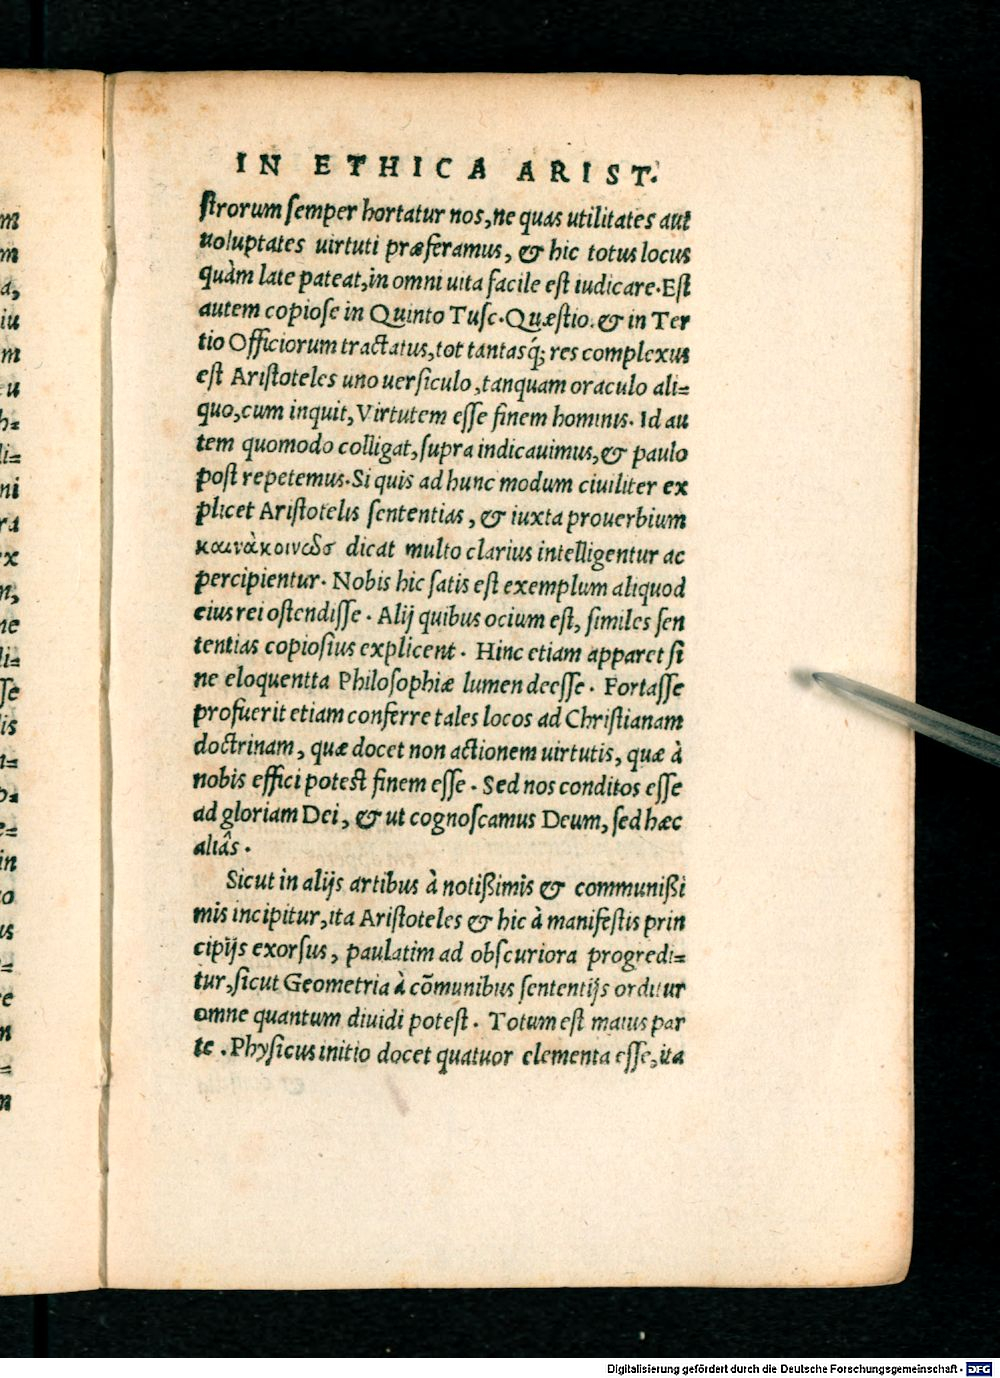 IN ETHICA ARIST.
ſtrorum ſemper hortatur nos, ne quas utilitates aut
uoluptates uirtuti præferamus, & hic totus locus
quàm late pateat, in omni uita facile eſt iudicare. Eſt
autem copioſe in Quinto Tuſc. Quæſtio. & in Ter
tio Officiorum tractatus, tot tantasq́; res complexus
eſt Ariſtoteles uno uerſiculo, tanquam oraculo ali=
quo, cum inquit, Virtutem eſſe finem hominis. Id au
tem quomodo colligat, ſupra indicauimus, & paulo
poſt repetemus. Si quis ad hunc modum ciuiliter ex
plicet Ariſtotelis ſententias, & iuxta prouerbium
καινὰ κοινῶσ dicat multo clarius intelligentur ac
percipientur. Nobis hic ſatis eſt exemplum aliquod
eius rei oſtendiſſe. Alij quibus ocium eſt, ſimiles ſen
tentias copioſius explicent. Hinc etiam apparet ſi
ne eloquentta Philoſophiæ lumen deeſſe. Fortaſſe
profuerit etiam conferre tales locos ad Chriſtianam
doctrinam, quæ docet non actionem uirtutis, quæ à
nobis effici poteſt finem eſſe. Sed nos conditos eſſe
ad gloriam Dei, & ut cognoſcamus Deum, ſed hæc
aliâs.
Sicut in alijs artibus à notißimis & communißi
mis incipitur, ita Ariſtoteles & hic à manifeſtis prin
cipijs exorſus, paulatim ad obſcuriora progredi=
tur, ſicut Geometria à cõmunibus ſententijs orditur
omne quantum diuidi poteſt. Totum eſt maius par
te. Phyſicus initio docet quatuor elementa eſſe, ita
Digitalisierung gefördert durch die Deutsche Forschungsgemeinschaft - DFG